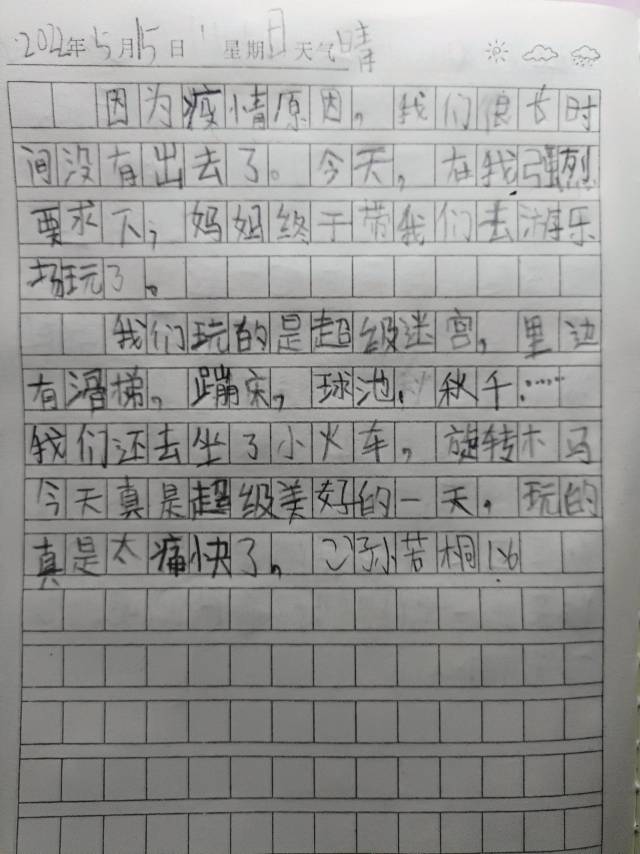 2022年5月15日 星期日 天气晴
因为疫情原因,我们很长时
间没有出去了。今天,在我强烈
要求下,妈妈终于带我们去游乐
场玩了。
我们玩的是超级迷宫,里边
有滑梯,蹦床,球池,秋千……
我们还去坐了小火车,旋转木马
今天真是超级美好的一天,玩的
真是太痛快了。